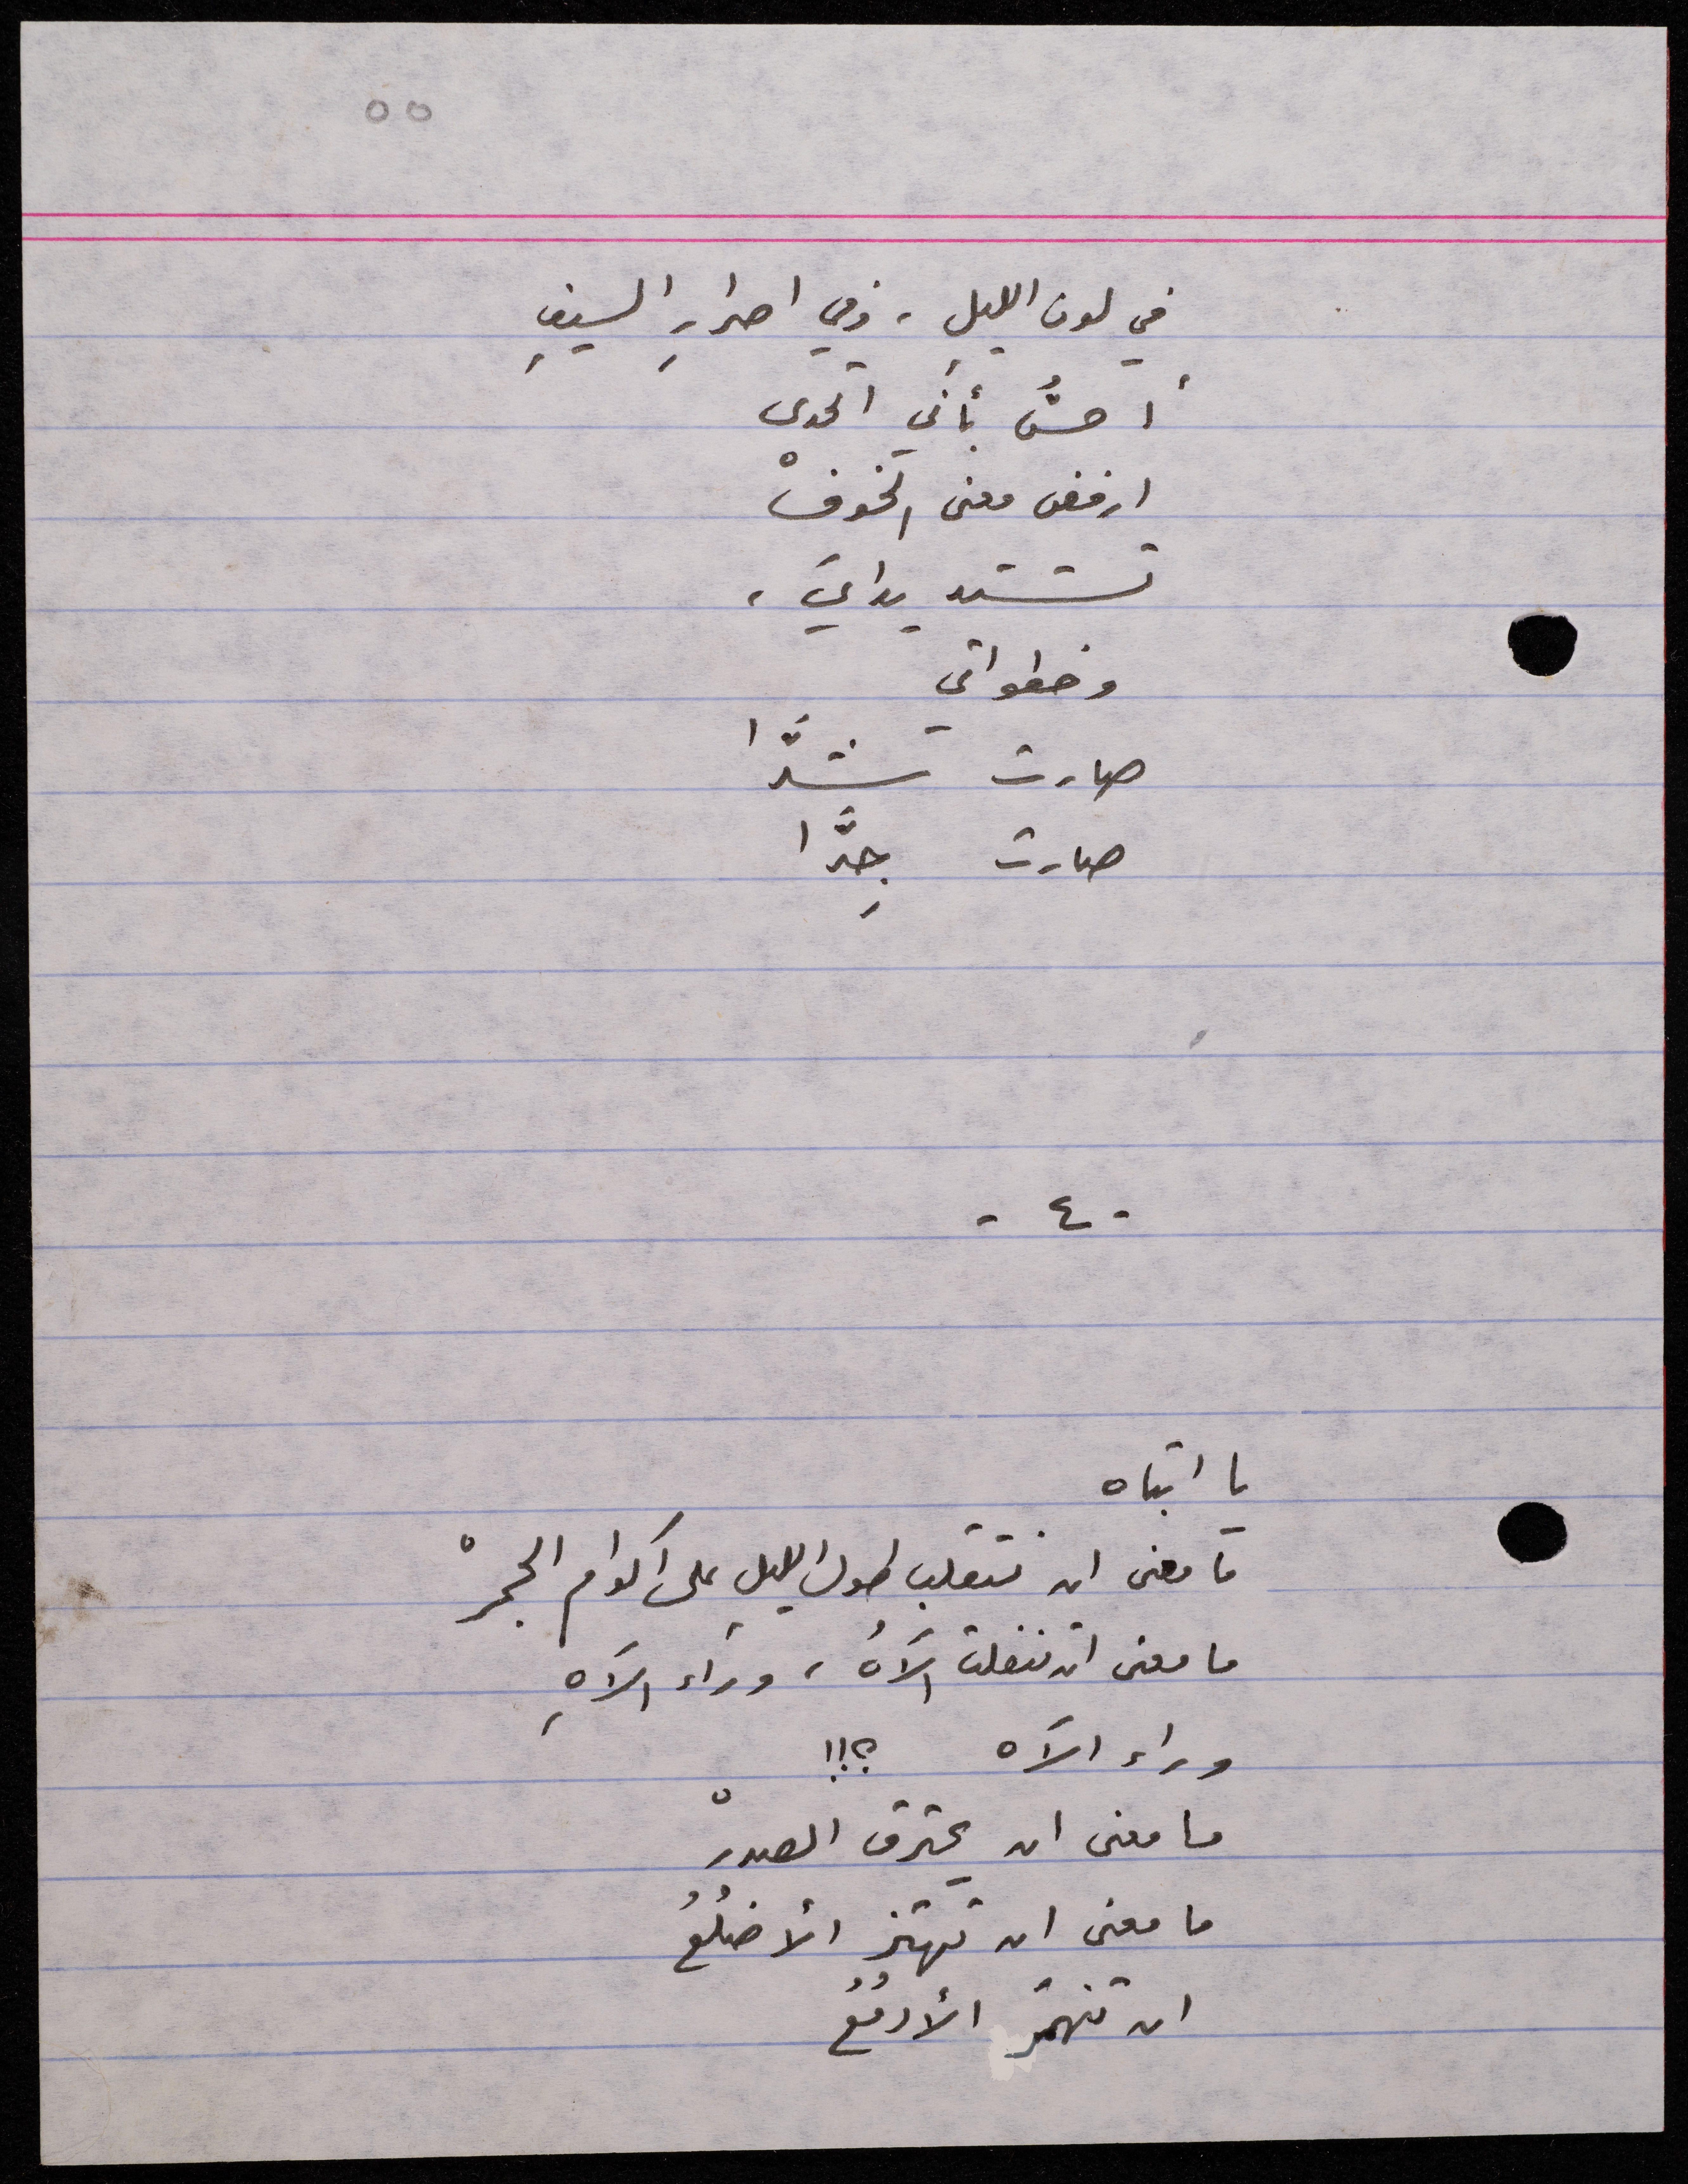 ٥٥
في لون الليلِ، وفي اصرارِ السيفِ
أُحسُّ بأني اتحدى
ارفض معنى الخوفْ
تشتد يدايَ،
وخطواتي
صارت شدَّا
صارت جِدَّا
- ٤ -
يا ابتاه
ما معنى ان نتقلب طول الليلِ على اكوام الجمرْ
ما معنى ان تنفلت الآهُ، وراء الآهِ
وراء الآه ؟!!
ما معنى ان يحترق الصدرْ
ما معنى ان تهتز الأضلُعُ
ان تنهمر الأدمُعُ